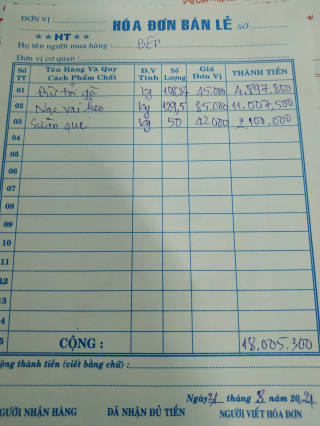 ĐƠN VỊ:
HÓA ĐƠN BÁN LẺ Số
★★HT★★
Họ tên người mua hàng: BẾP
Đơn vị cơ quan:
Số TT Tên Hàng Và Quy Cách Phẩm Chất Đ.V Tính Số Lượng Giá Đơn Vị THÀNH TIỀN
01 tỏi gà kg 45.000 4.897.800
02 Nạc vai heo kg 129,5 85.000 11.007.500
03 Sườn que kg 50 42000 2.100.000
04
05
06
07
08
09
10
11
12
13
CỘNG: 18.005.300
ộng thành tiền (viết bằng chữ):
Ngày 21 tháng 8 năm 2021
GƯỜI NHẬN HÀNG ĐÃ NHẬN ĐỦ TIỀN NGƯỜI VIẾT HÓA ĐƠN